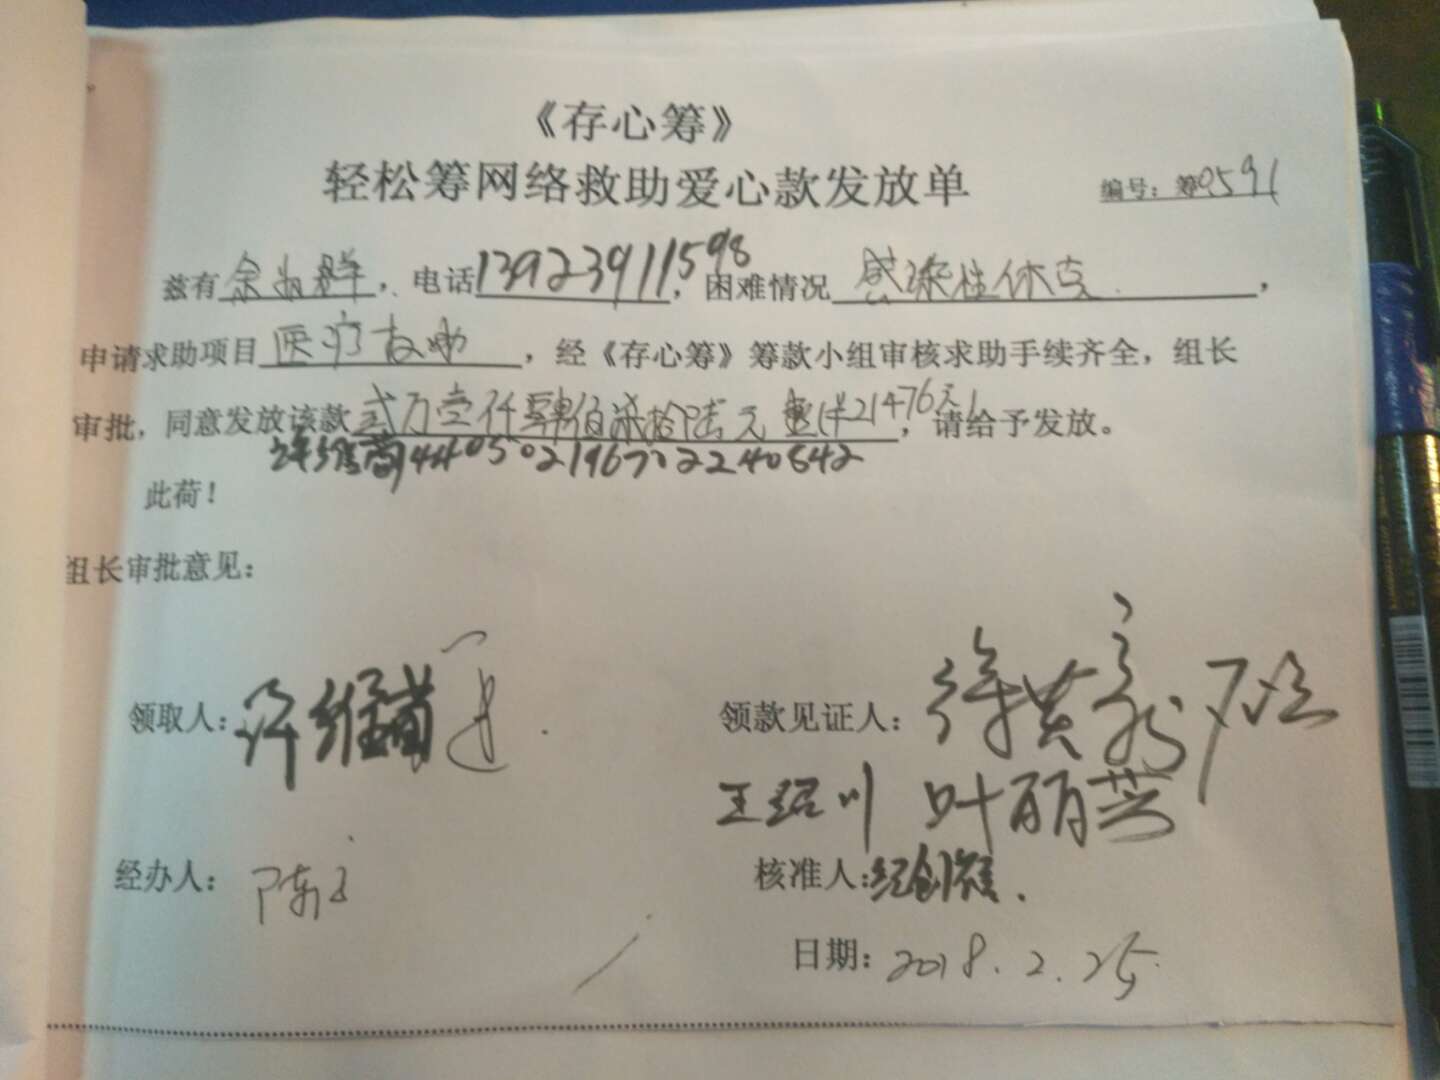 《存心筹》
轻松筹网络救助爱心款发放单 编号：筹0591
兹有余 群，电话13923911598，困难情况 感染性休克，
申请求助项目 医疗救助，经《存心筹》筹款小组审核求助手续齐全，组长
审批，同意发放该款 贰万壹仟肆佰柒拾陆元 21476元，请给予发放。
许维菊440502196702240842
此荷！
组长审批意见：
领取人：许维菊 领款见证人：
王绍川 叶丽芸
经办人：陈 核准人：
日期：2018.2.25